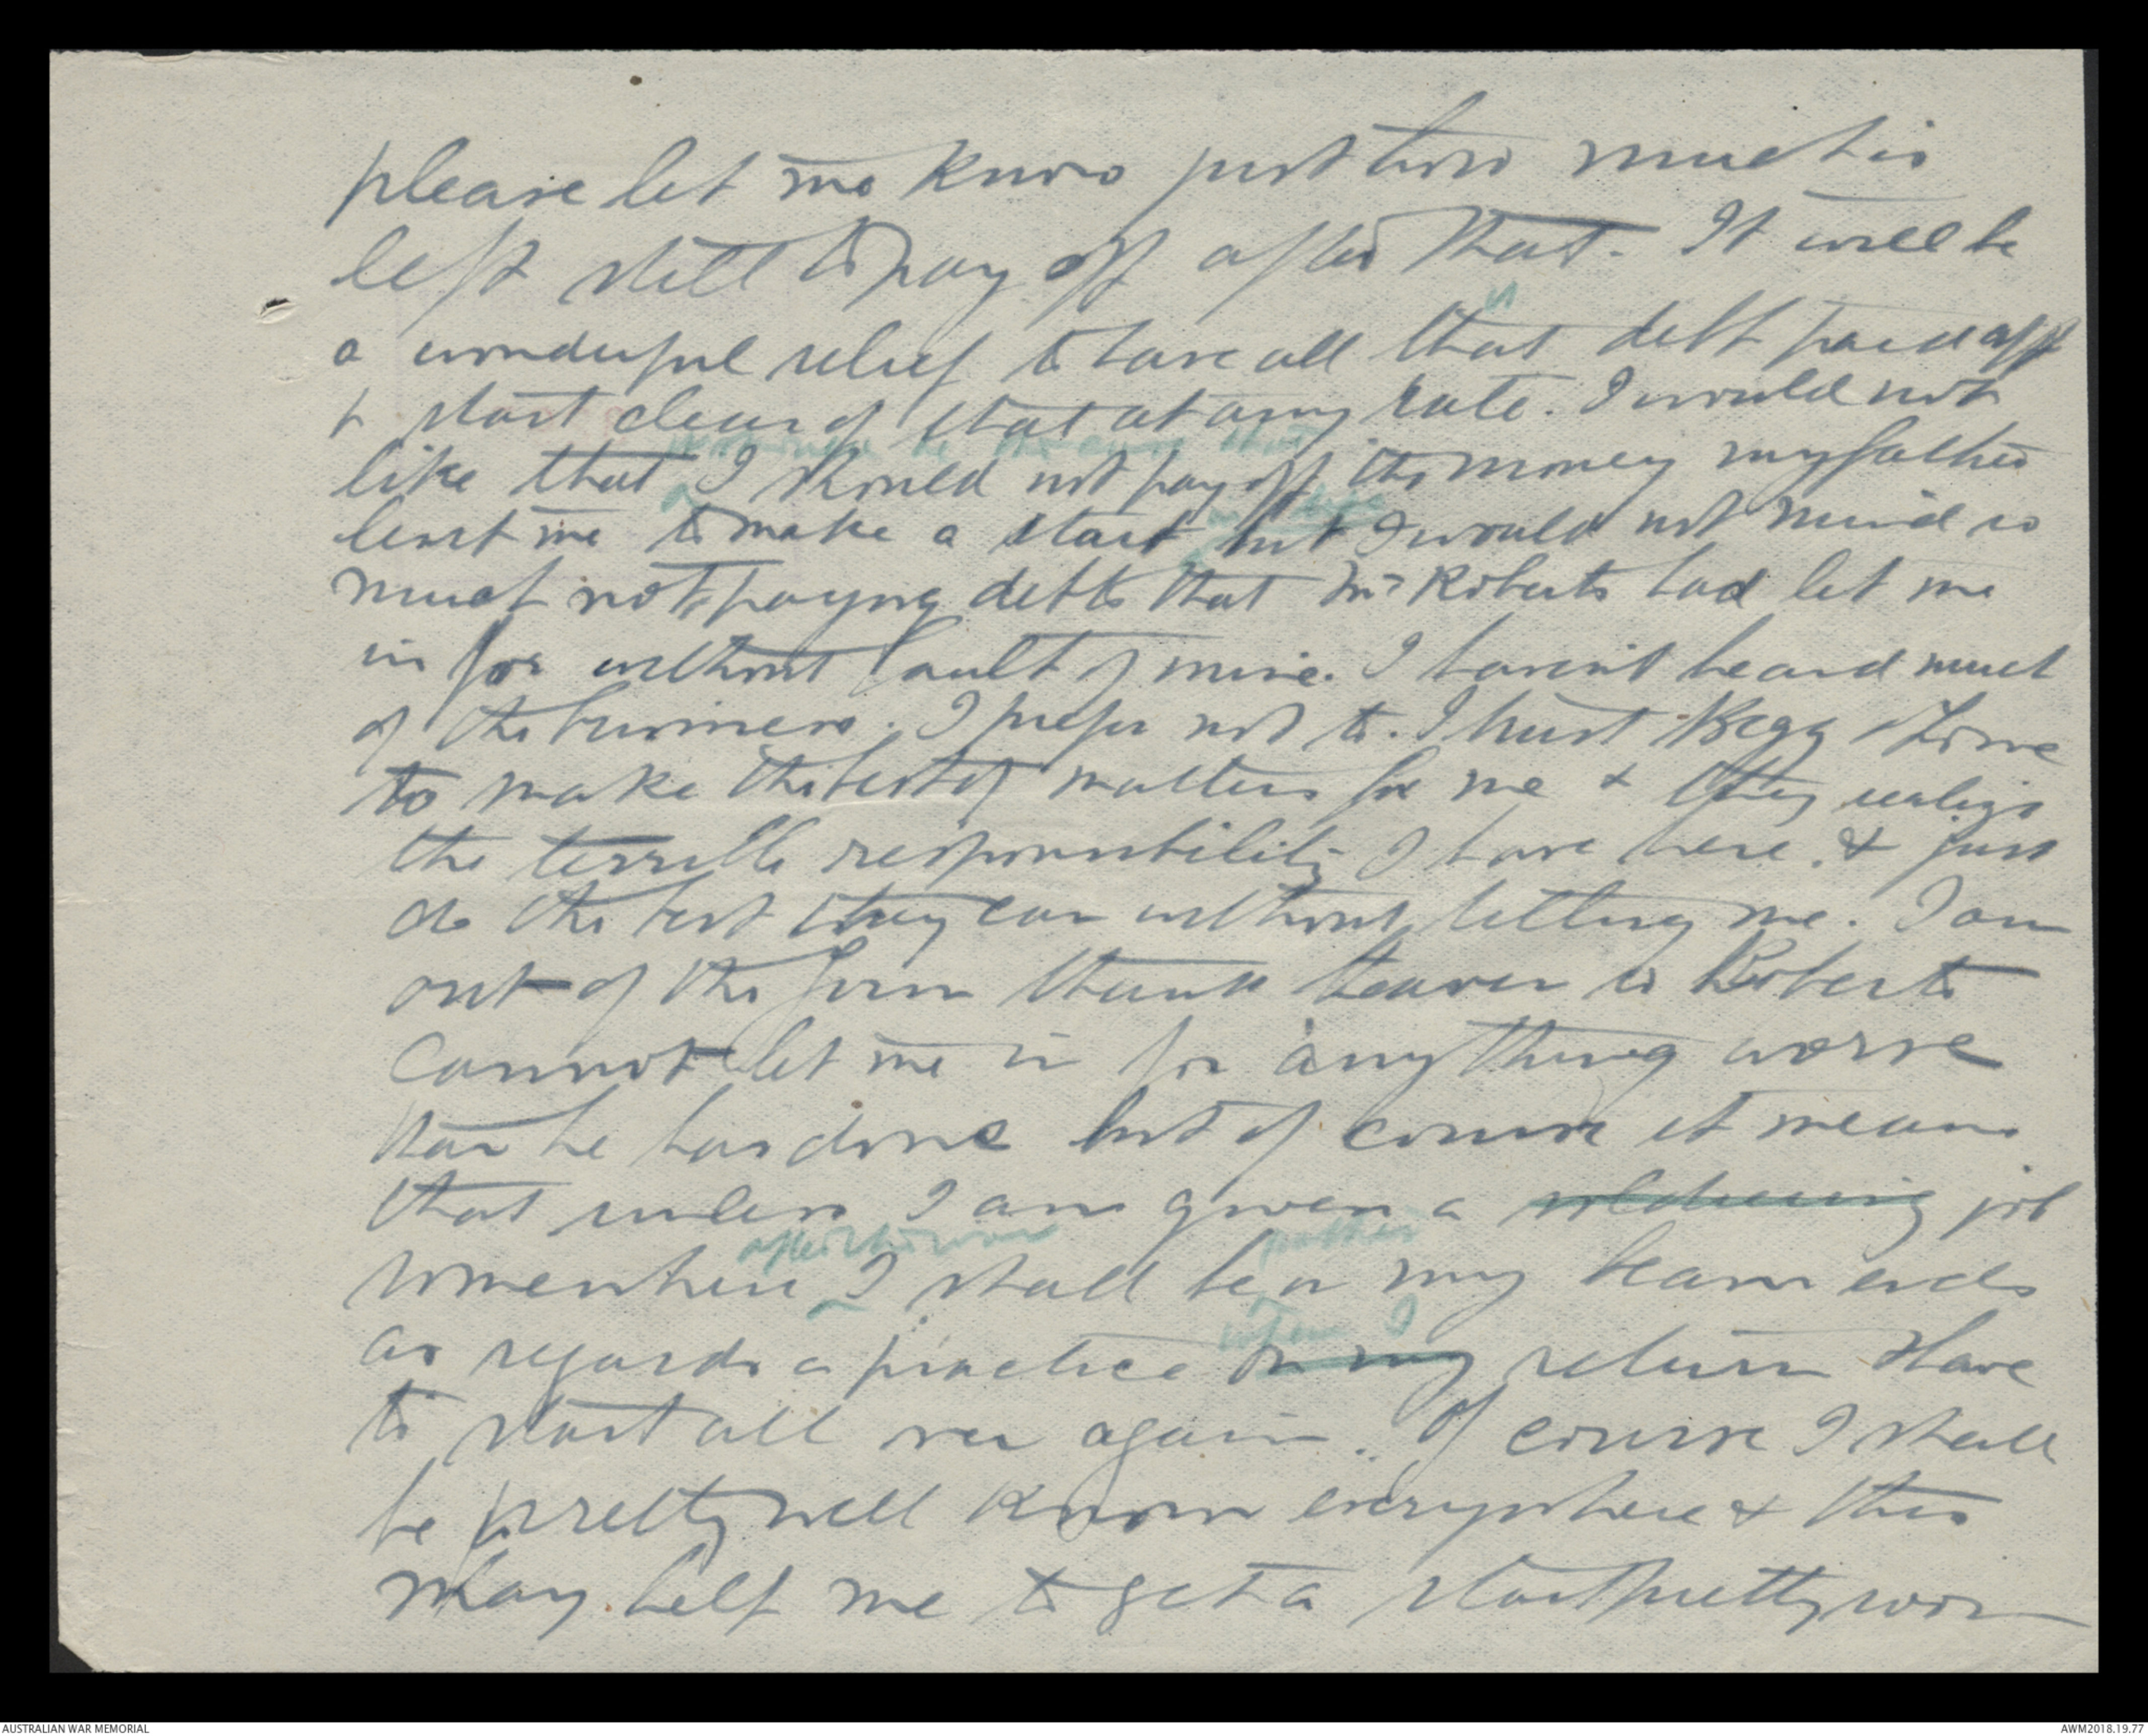 please let me know just how much is
left still to pay off after that. It will be
is
a wonderful relief to have all that debt paid off
& start clear of that at any rate. I would not
like that I should not pay off the money my father
leant me to make a start but I would not mind so
much not paying debts that Mr Roberts had let me
in for without fault of mine. I haven't heard much
of the business. I prefer not to. I trust Begg & Lowe
to make the best of matters for me & they realize
the terrible responsibility I have here & just
do the best they can without telling me. I am
out of the firm thank heaven so Roberts
cannot let me in for anything worse
than he has done but of course it means
that unless I am given a soldiering job
after the war rather
somewhere I shall be on my beam ends
when I
as regards a practice on my return & have
to start all over again. Of course I shall
be pretty well known everywhere & this
may help me to get a start pretty soon
AUSTRALIAN WAR MEMORIAL
AWM2018.19.77